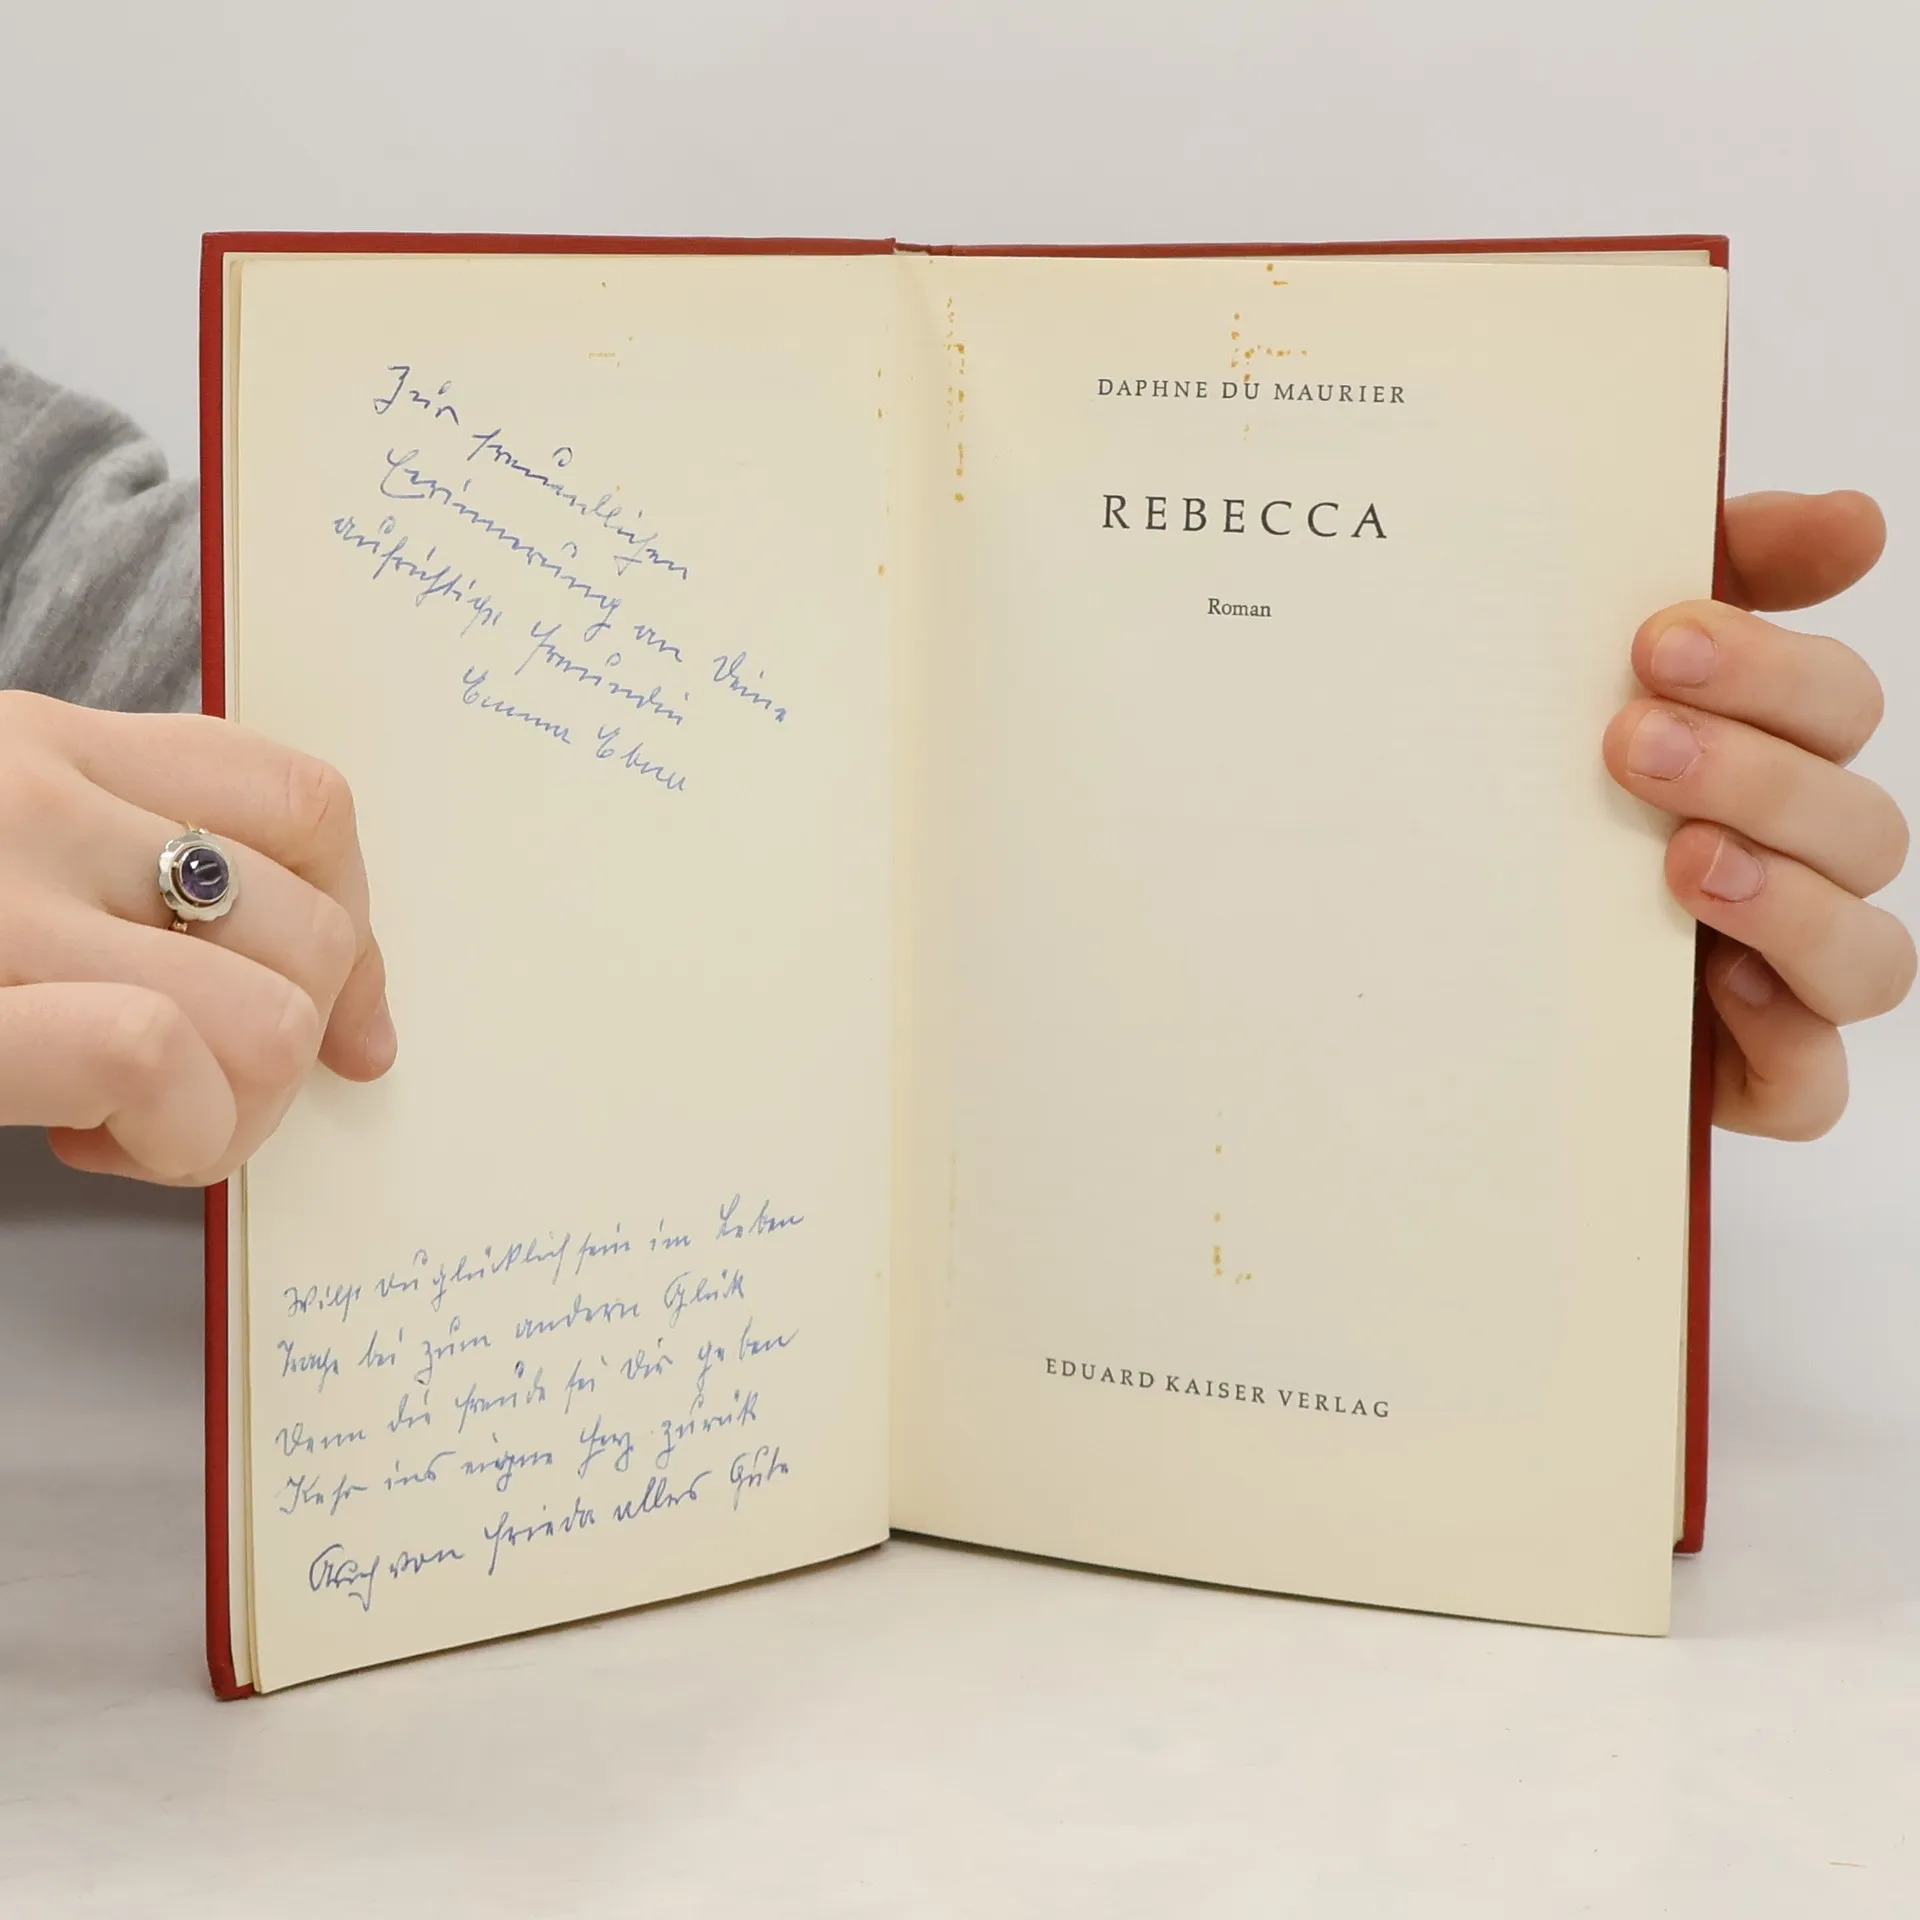 Zur
freundlichen
Erinnerung an Deine
aufrichtige Freundin
Emma
Willst du glücklich sein im Leben
Trage bei zum andern Glück
Denn die Freude sei Dir geben
Kehr ins eigne Herz zurück
Auch von Frieda alles Gute
DAPHNE DU MAURIER
REBECCA
Roman
EDUARD KAISER VERLAG